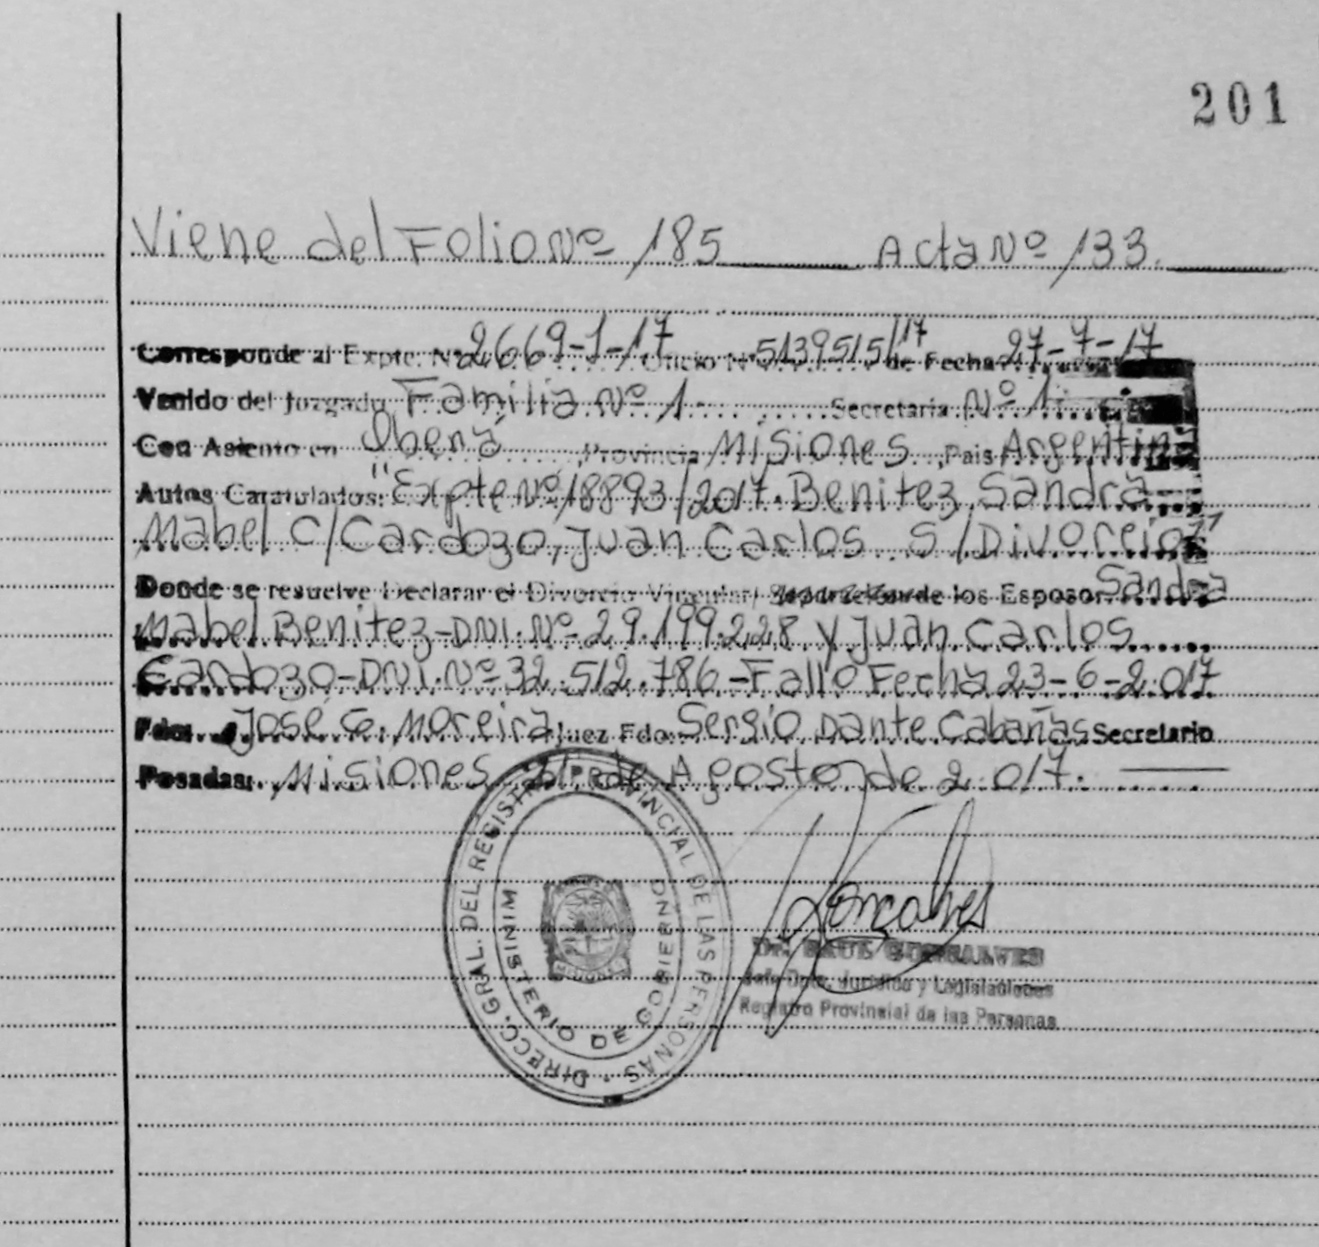 201
Viene del Folio Nº 185 Acta Nº 133.
Corresponde al Expte. Nº 2669-1-17 Oficio Nº 5139515/17 de Fecha 27-7-17
Venido del Juzgado Familia Nº 1- Secretaria Nº 1
Con Asiento en Oberá Provincia Misiones Pais Argentina
Autos Caratulados: "Expte Nº 18893/2017. Benitez, Sandra
Mabel C/Cardozo, Juan Carlos S/Divorcio"
Donde se resuelve Declarar el Divorcio Vincular/ Separación de los Esposos Sandra
Mabel Benitez-DNI.Nº 29.199.228 y Juan Carlos
Cardozo-DNI.Nº 32.512.786-Fallo Fecha 23-6-2017
Fdo. José G. Moreira Juez Fdo: Sergio Dante Cabañas Secretario
Posadas: Misiones, de Agosto de 2017.
DIRECC. GRAL. DEL REGISTRO PROVINCIAL DE LAS PERSONAS
MINISTERIO DE GOBIERNO
Gonçalves
Dr. RAUL GONSALVES
Jefe Dpto. Jurídico y Legislaciones
Registro Provincial de las Personas